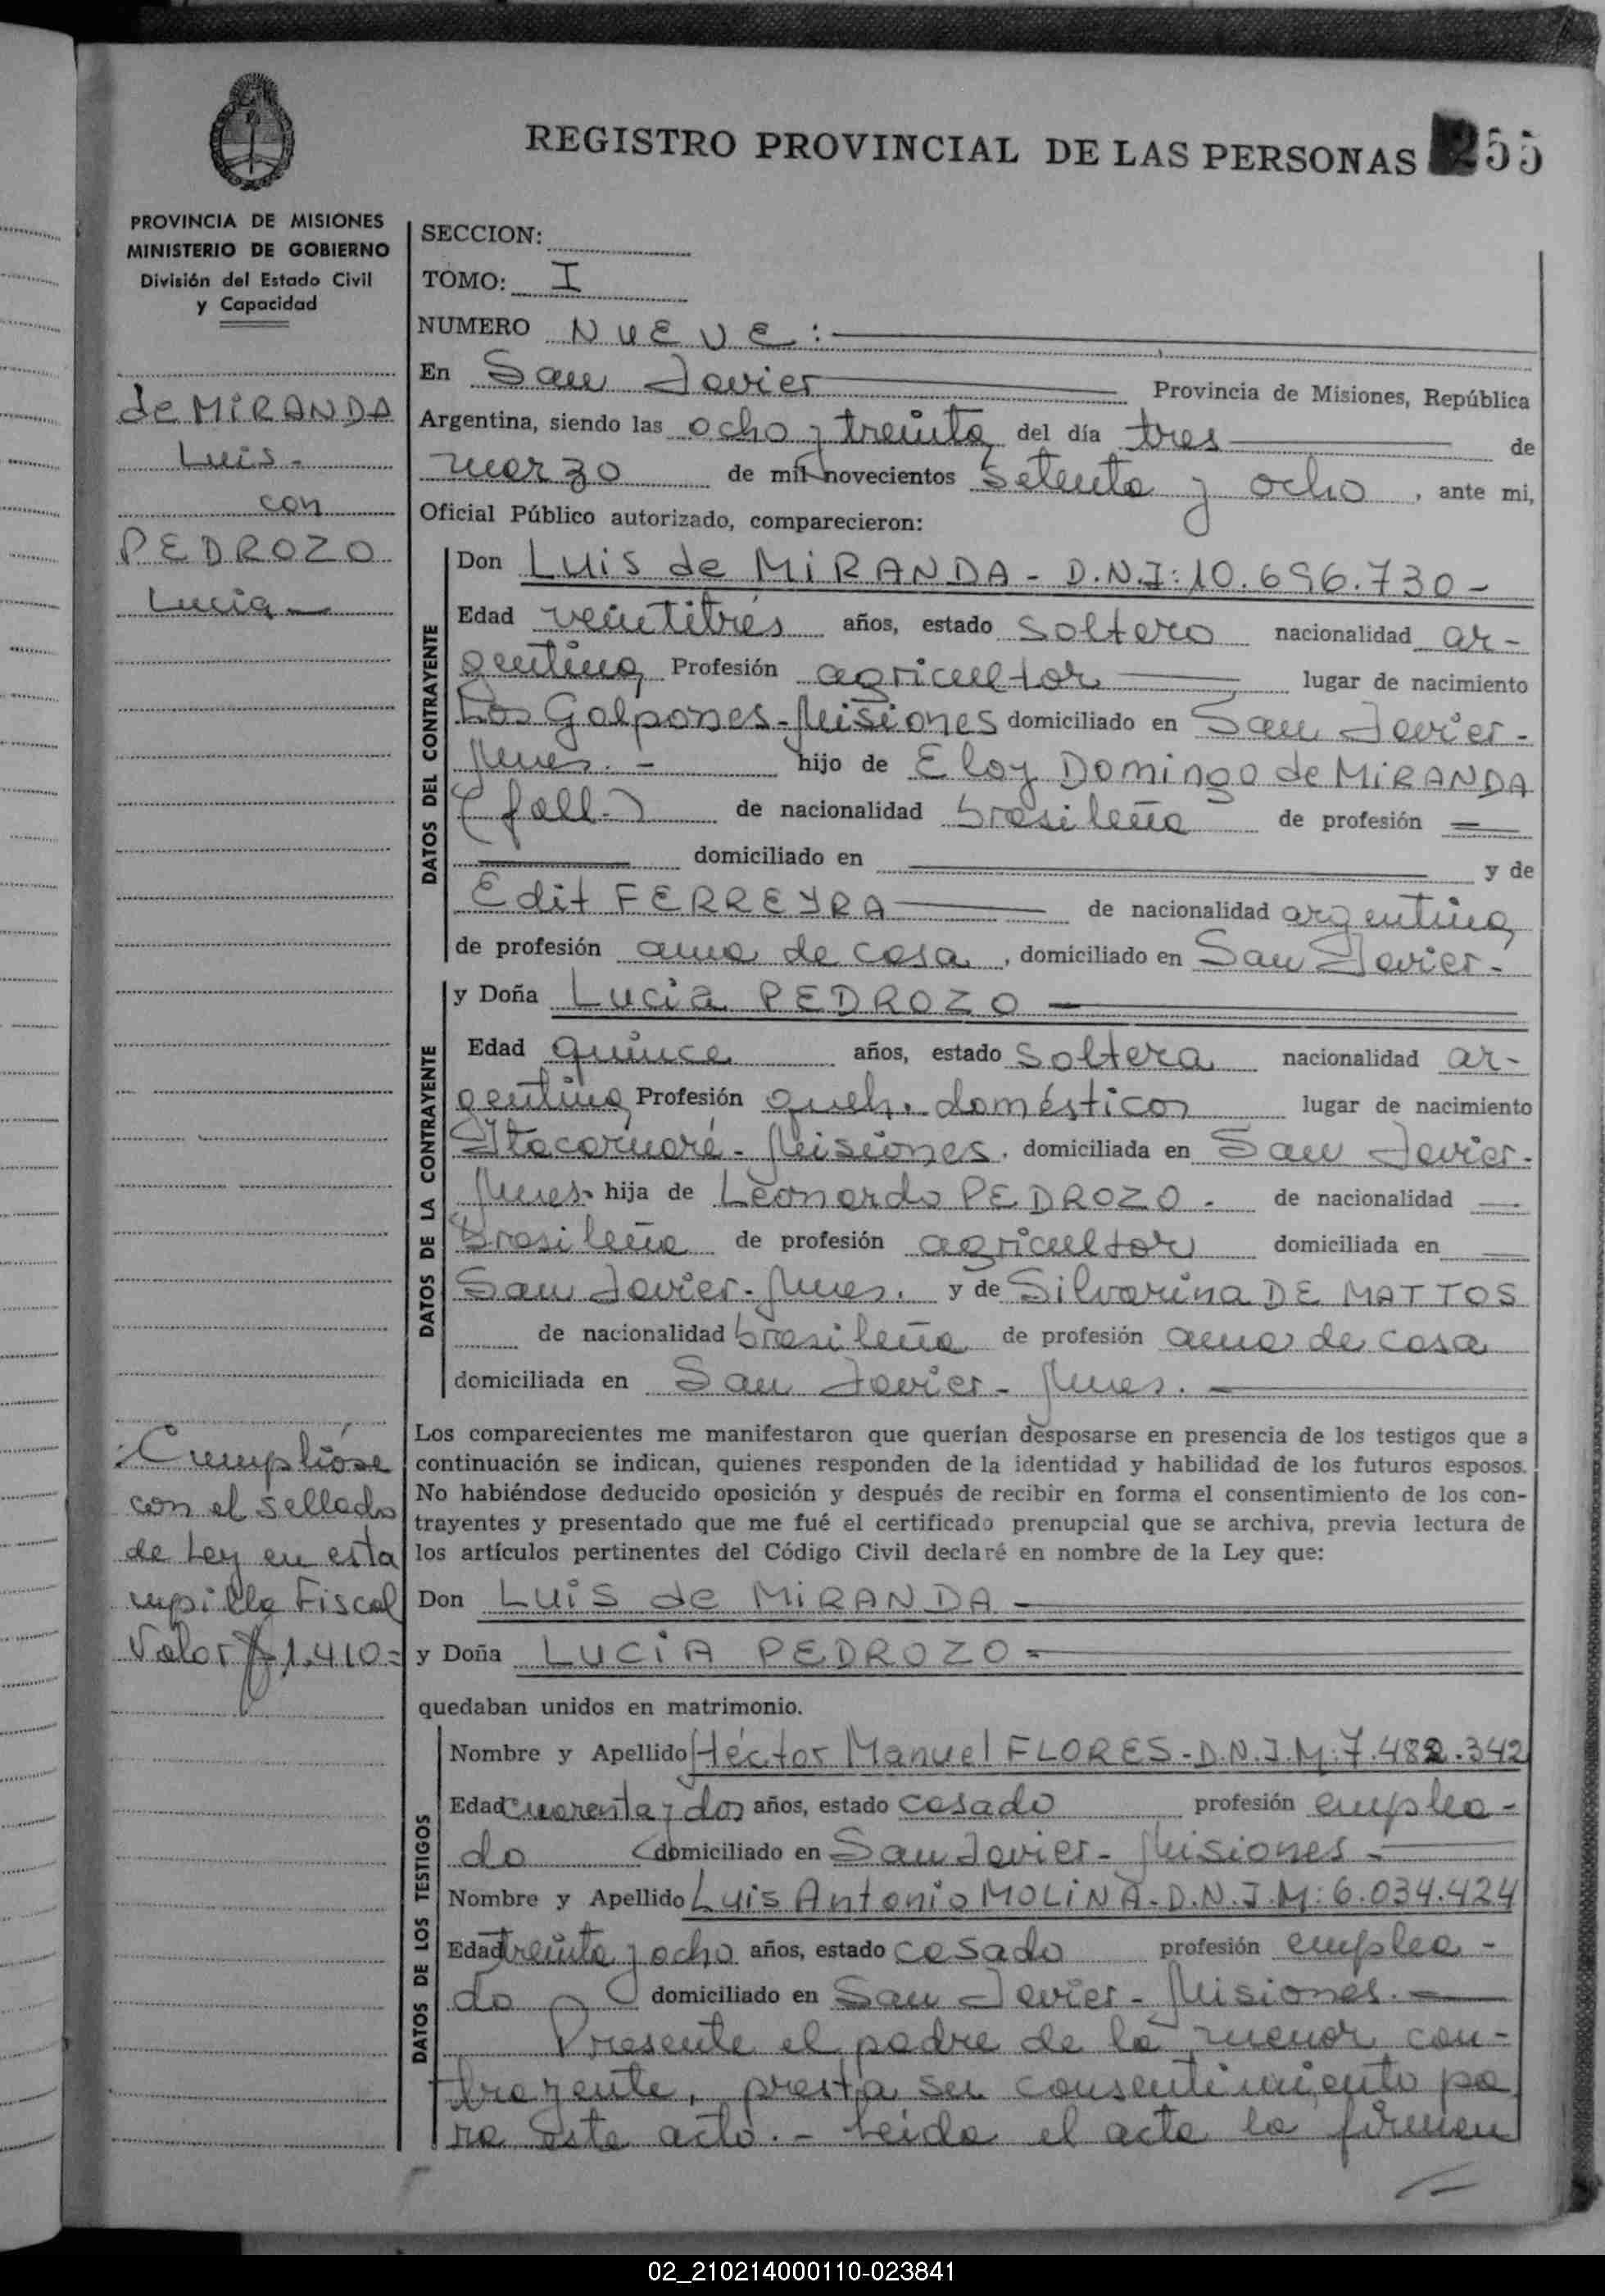 REGISTRO PROVINCIAL DE LAS PERSONAS 255
PROVINCIA DE MISIONES
MINISTERIO DE GOBIERNO
División del Estado Civil
y Capacidad
de MIRANDA
Luis.-
con
PEDROZO
Lucia
Cumplióse
con el sellado
de Ley en esta
Fiscal
Valor $ 1.410=
SECCION:
TOMO: I
NUMERO NUEVE:
En San Javier Provincia de Misiones, República
Argentina, siendo las ocho y treinta del día tres de
marzo de mil novecientos setenta y ocho, ante mi,
Oficial Público autorizado, comparecieron:
DATOS DEL CONTRAYENTE
Don Luis de MIRANDA - D.N.I: 10.696.730-
Edad veintitrés años, estado soltero nacionalidad ar-
gentina Profesión agricultor lugar de nacimiento
Los Galpones-Misiones domiciliado en San Javier-
Mnes.- hijo de Eloy Domingo de MIRANDA
(fall.) de nacionalidad brasileña de profesión
domiciliado en y de
Edit FERREYRA de nacionalidad argentina
de profesión ama de casa, domiciliado en San Javier-
DATOS DE LA CONTRAYENTE
y Doña Lucia PEDROZO
Edad quince años, estado soltera nacionalidad ar-
gentina Profesión queh. domésticos lugar de nacimiento
Itacaruaré-Misiones. domiciliada en San Javier-
Mnes. hija de Leonardo PEDROZO. de nacionalidad
Brasileña de profesión agricultor domiciliada en
San Javier-Mnes. y de Silvarina DE MATTOS
de nacionalidad brasileña de profesión ama de casa
domiciliada en San Javier- Mnes.
Los comparecientes me manifestaron que querían desposarse en presencia de los testigos que a
continuación se indican, quienes responden de la identidad y habilidad de los futuros esposos.
No habiéndose deducido oposición y después de recibir en forma el consentimiento de los con-
trayentes y presentado que me fué el certificado prenupcial que se archiva, previa lectura de
los artículos pertinentes del Código Civil declaré en nombre de la Ley que:
Don LUIS de MIRANDA
y Doña LUCIA PEDROZO-
quedaban unidos en matrimonio.
DATOS DE LOS TESTIGOS
Nombre y Apellido Héctor Manuel FLORES-D.N.I.M: 7.482.342
Edad cuarenta y dos años, estado casado profesión emplea-
do domiciliado en San Javier- Misiones-
Nombre y Apellido Luis Antonio MOLINA-D.N.I.M: 6.034.424
Edad treinta y ocho años, estado casado profesión emplea-
do domiciliado en San Javier- Misiones.
Presente el padre de la menor con-
trayente, presta su consentimiento pa
ra este acto.- Leida el acta la firman
02_210214000110-023841